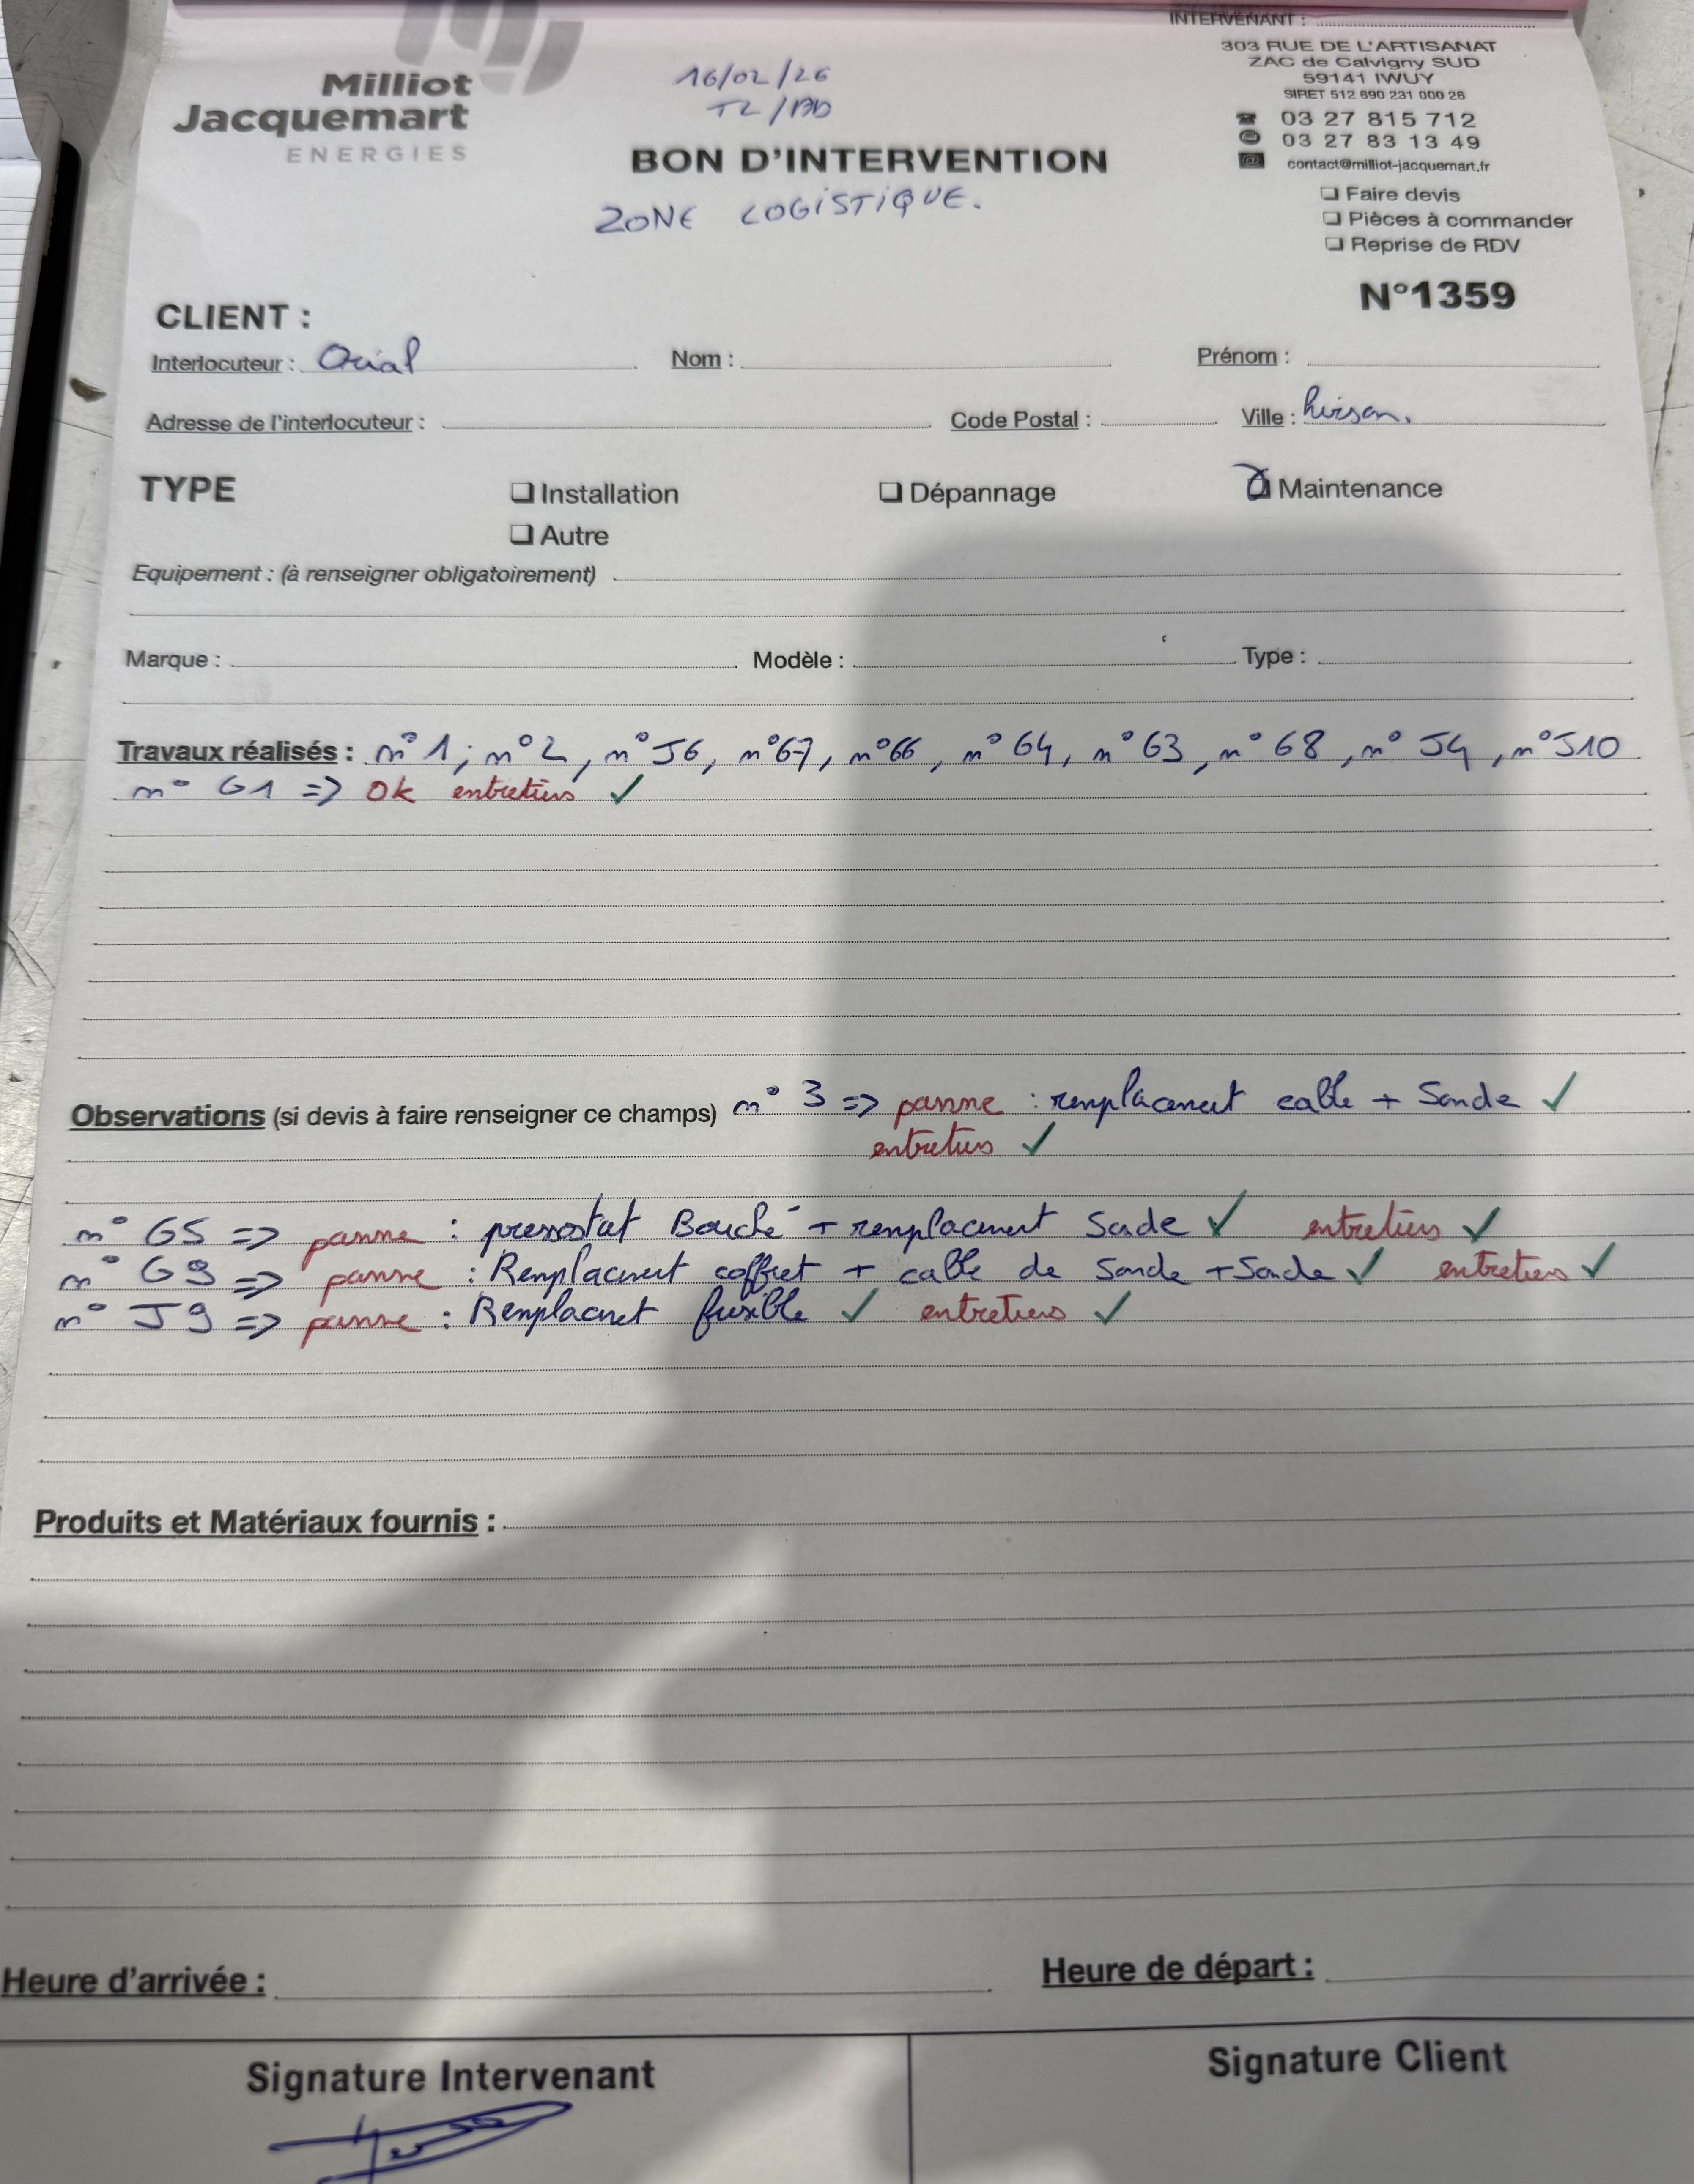 INTERVENANT :
Milliot
Jacquemart
ENERGIES
16/02/26
TL/
303 RUE DE L'ARTISANAT
ZAC de Calvigny SUD
59141 IWUY
SIRET 512 690 231 000 26
03 27 815 712
03 27 83 13 49
contact@milliot-jacquemart.fr
BON D'INTERVENTION
ZONE LOGISTIQUE.
Faire devis
Pièces à commander
Reprise de RDV
N°1359
CLIENT :
Interlocuteur : Nom : Prénom :
Adresse de l'interlocuteur : Code Postal : Ville : hirson.
TYPE Installation Dépannage Maintenance
Autre
Equipement : (à renseigner obligatoirement)
Marque : Modèle : Type :
Travaux réalisés : n° 1, n° 2, n° J6, n° G7, n° G6, n° G4, n° G3, n° G8, n° J4, n° J10
n° G1 => Ok entretiens ✓
Observations (si devis à faire renseigner ce champs) n° 3 => panne : remplacement cable + Sonde ✓
entretiens ✓
n° G5 => panne : pressostat Bouché + remplacement Sonde ✓ entretiens ✓
n° G9 => panne : Remplacement coffret + cable de Sonde + Sonde ✓ entretiens ✓
n° J9 => panne : Remplacement fusible ✓ entretiens ✓
Produits et Matériaux fournis :
Heure d'arrivée : Heure de départ :
Signature Intervenant Signature Client